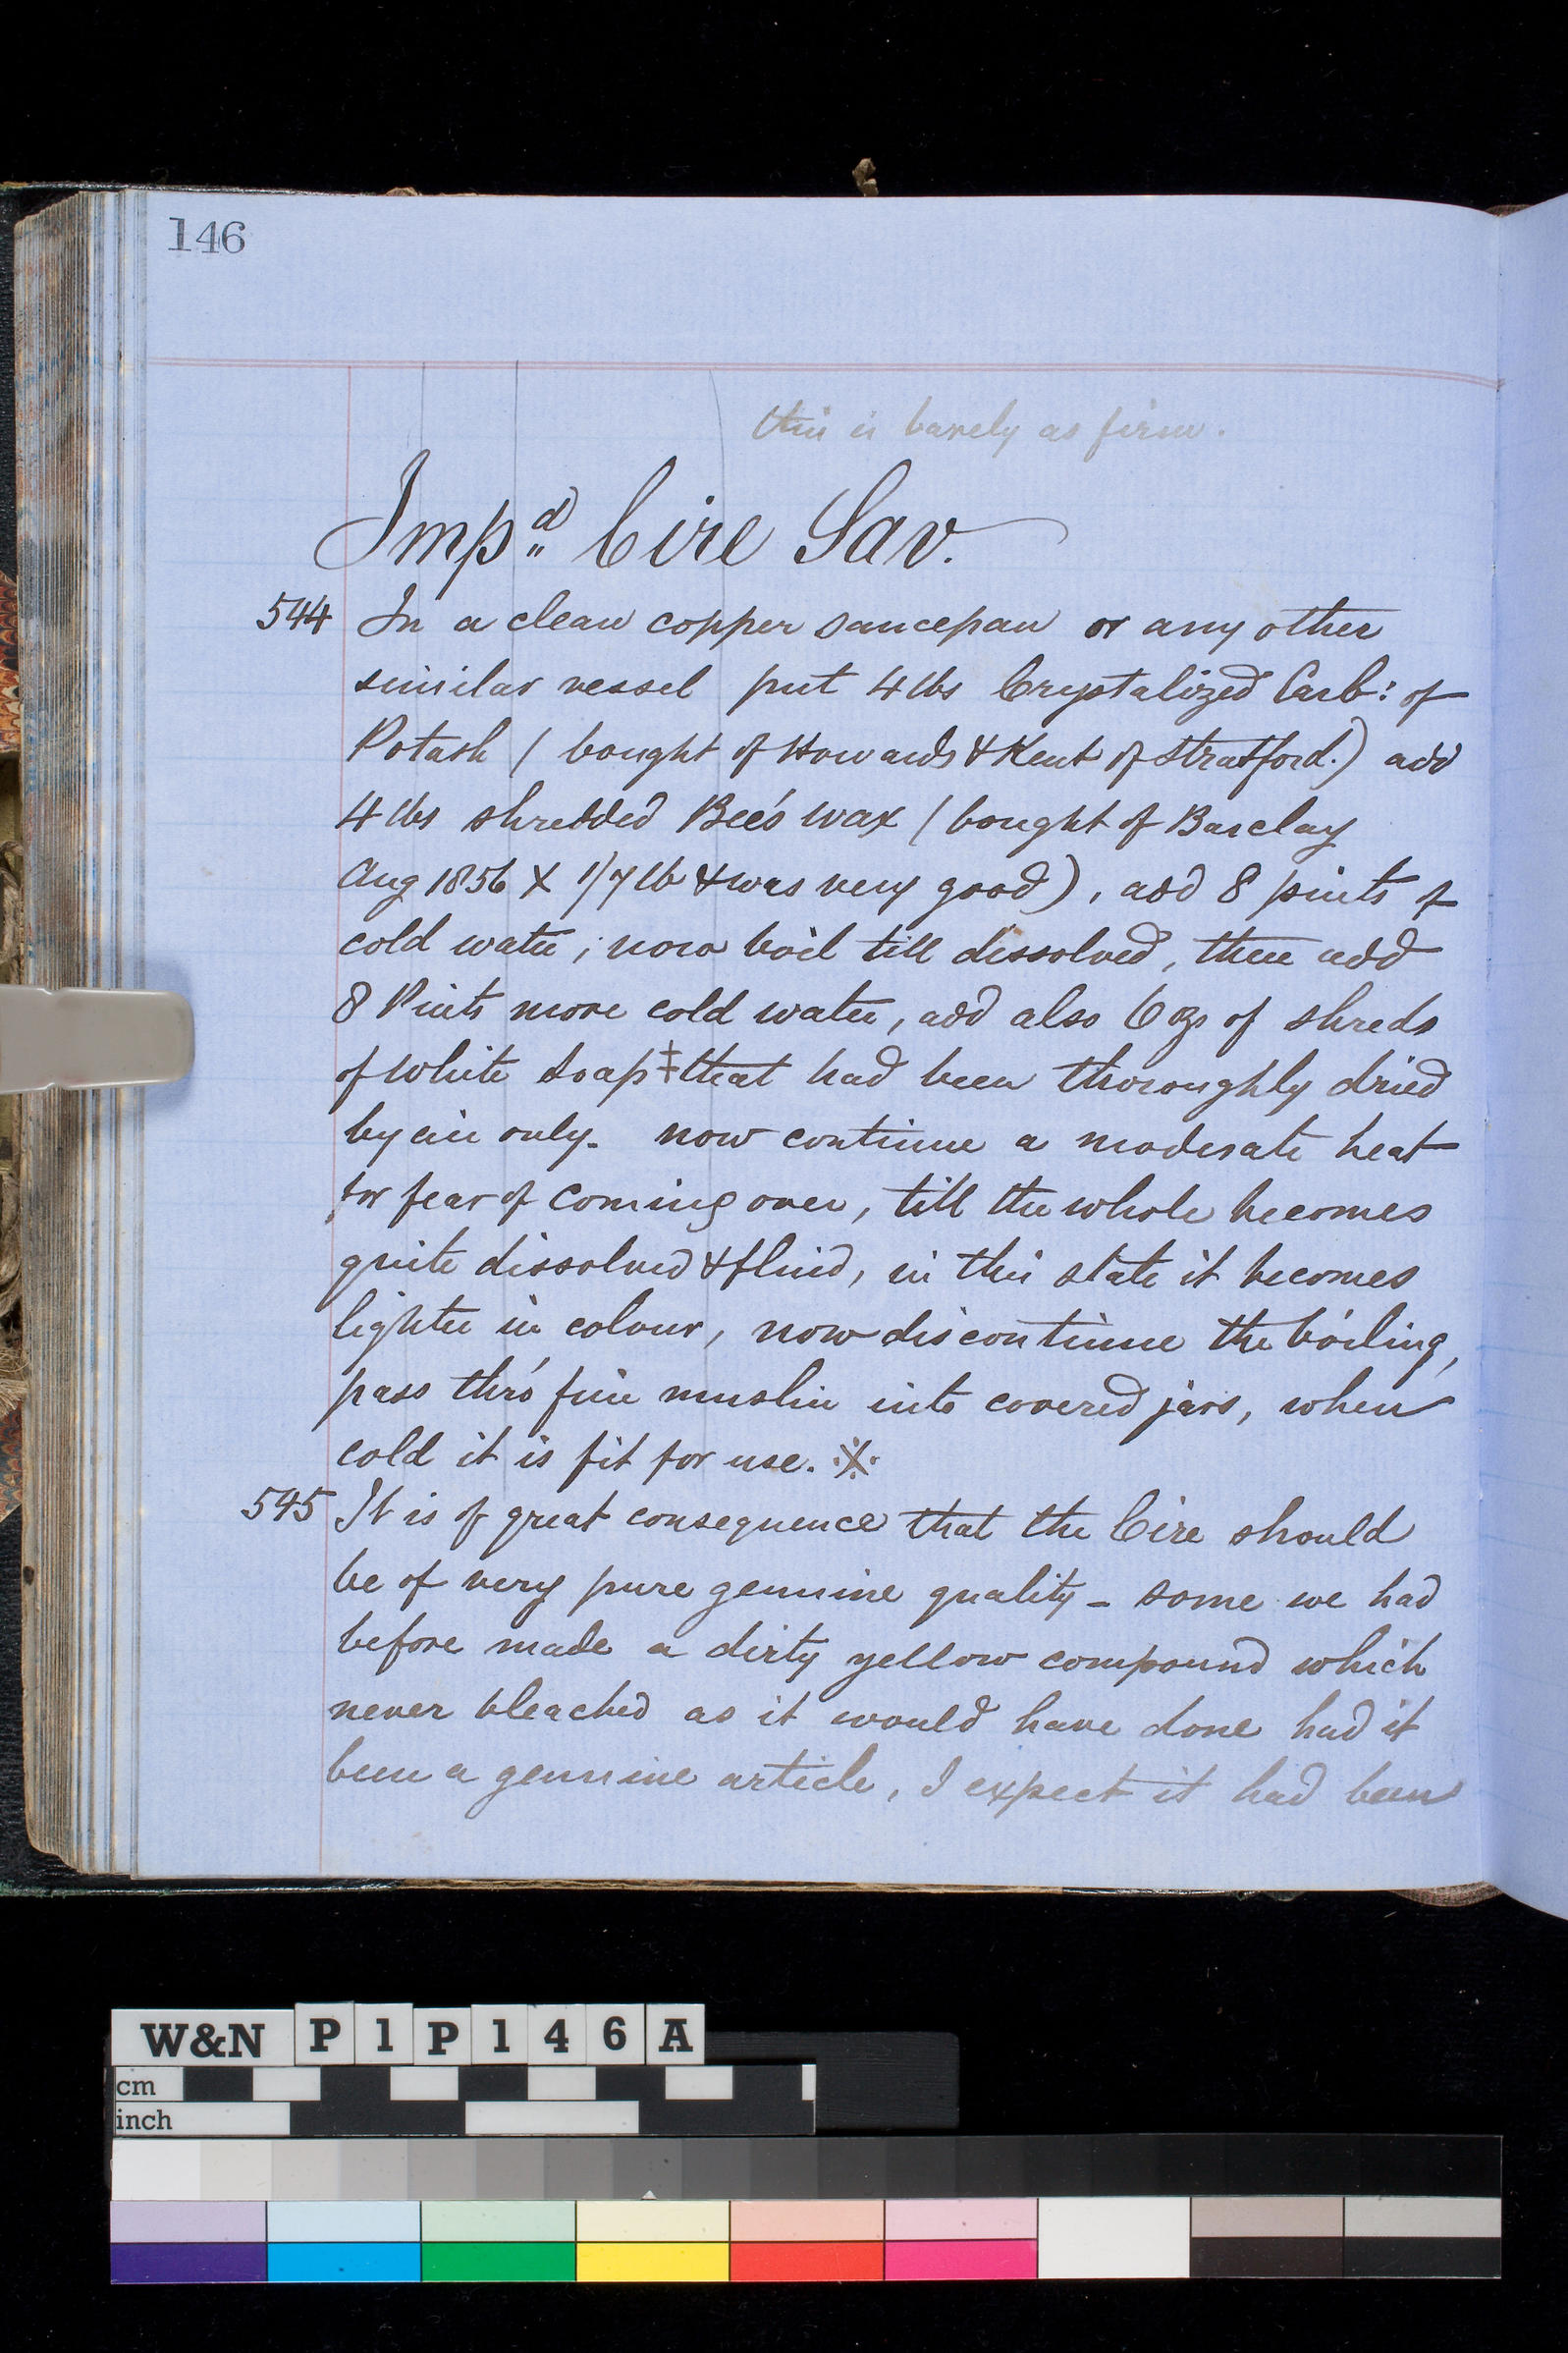 146
this is barely as firm.
Imp.d Cire Sav.
544 In a clean copper saucepan or any other
similar vessel put 4 lbs Crystalized Carb: of
Potash (bought of Howards & Kent of Stratford.) add
4 lbs shredded Bee's wax (bought of Barclay
Aug 1856 X 1/7 lb & was very good), add 8 pints of
cold water; now boil till dissolved, then add
8 Pints more cold water, add also 6 ozs of shreds
of White Soap ‡ that had been thoroughly dried
by air only. now continue a moderate heat
for fear of coming over, till the whole becomes
quite dissolved & fluid, in this state it becomes
lighter in colour, now discontinue the boiling,
pass thro' fine muslin into covered jars, when
cold it is fit for use. ※
545 It is of great consequence that the Cire should
be of very pure genuine quality - some we had
before made a dirty yellow compound which
never bleached as it would have done had it
been a genuine article, I expect it had been
W&N P1P146A
cm
inch